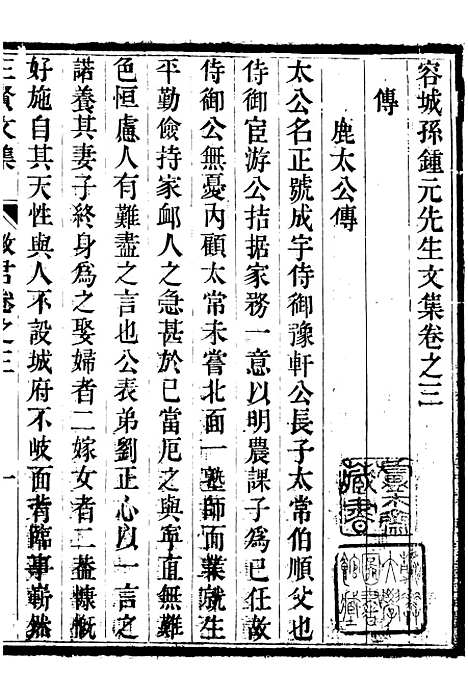 容城孫鍾元先生文集卷之三
傳
鹿太公傳
太公名正號成宇侍御豫軒公長子太常伯順父也
侍御宦游公拮据家務一意以明農課子為已任故
侍御公無憂內顧太常未嘗北面一塾師而業就生
平勤儉持家邮人之急甚於已當厄之與寧直無難
色恒慮人有難盡之言也公表弟劉正心以一言之
諾養其妻子終身為之娶婦者二嫁女者二葢慷慨
好施自其天性與人不設城府不岐面背臨事嶄然
三賢文集
徵君卷之三
一
藏書